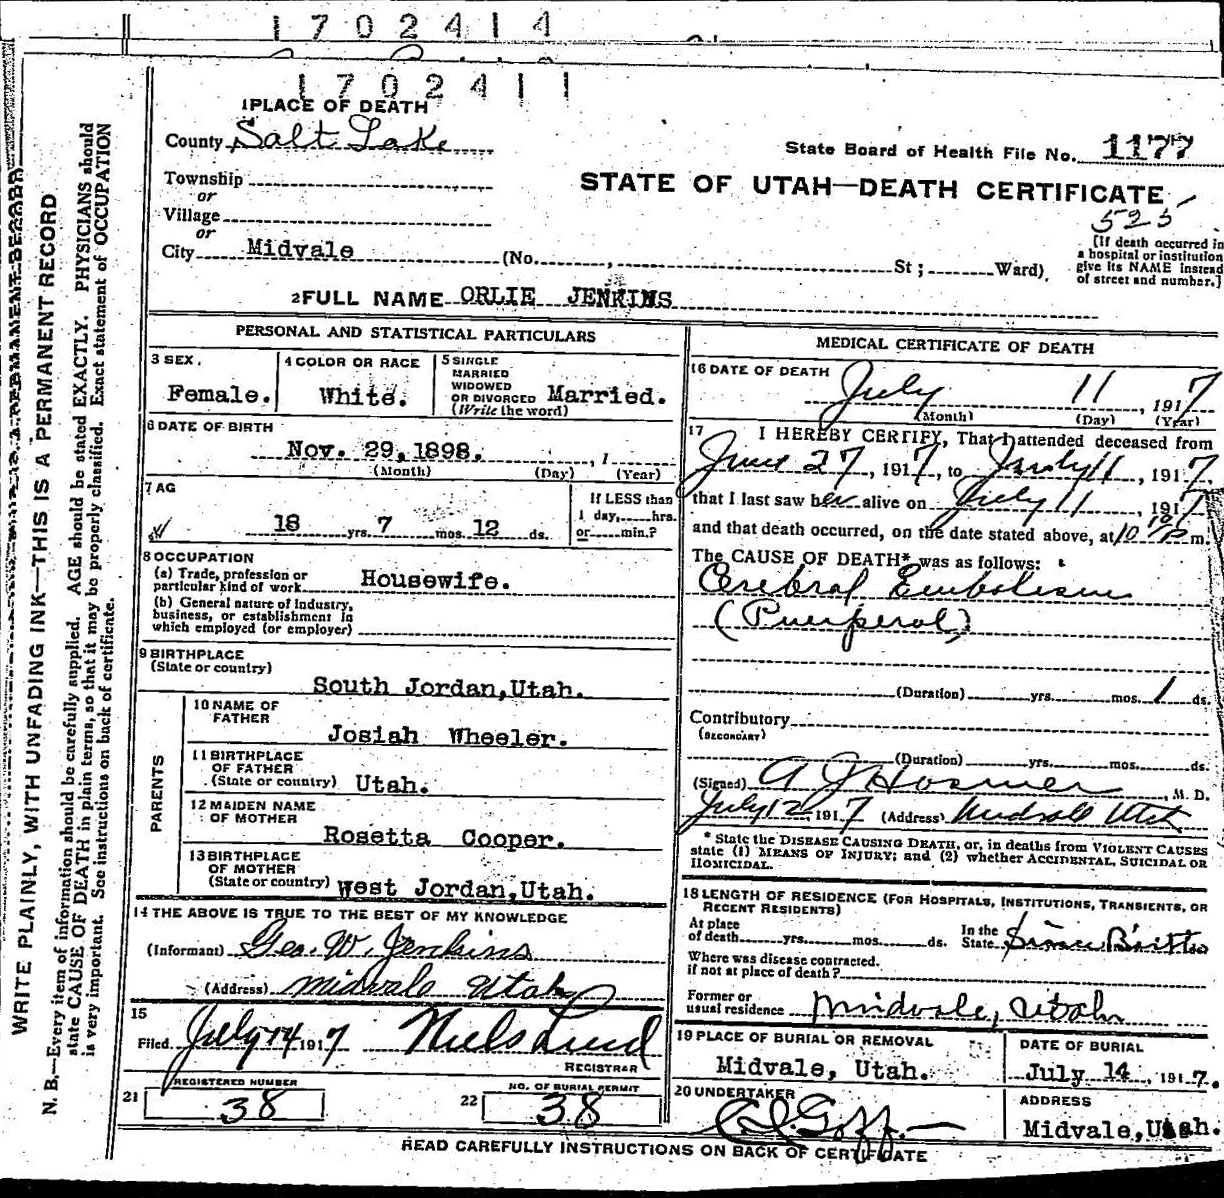 1702414
1702411
1 PLACE OF DEATH
County Salt Lake
State Board of Health File No. 1177
Township
or
STATE OF UTAH—DEATH CERTIFICATE
525
Village
or
City Midvale (No. , St ; Ward)
[If death occurred in
a hospital or institution
give its NAME instead
of street and number.]
2 FULL NAME ORLIE JENKINS
PERSONAL AND STATISTICAL PARTICULARS
3 SEX.
Female.
4 COLOR OR RACE
White.
5 SINGLE
MARRIED
WIDOWED
OR DIVORCED
(Write the word)
Married.
6 DATE OF BIRTH
Nov. 29, 1898. , 1
(Month) (Day) (Year)
7 AG
18 yrs. 7 mos. 12 ds.
If LESS than
1 day, hrs.
or min.?
8 OCCUPATION
(a) Trade, profession or
particular kind of work Housewife.
(b) General nature of industry,
business, or establishment in
which employed (or employer)
9 BIRTHPLACE
(State or country)
South Jordan, Utah.
PARENTS
10 NAME OF
FATHER
Josiah Wheeler.
11 BIRTHPLACE
OF FATHER
(State or country) Utah.
12 MAIDEN NAME
OF MOTHER
Rosetta Cooper.
13 BIRTHPLACE
OF MOTHER
(State or country) West Jordan, Utah.
14 THE ABOVE IS TRUE TO THE BEST OF MY KNOWLEDGE
(Informant) Geo. W. Jenkins
(Address) Midvale Utah
15
Filed July 14 1917 Niels Lind
REGISTRAR
21 REGISTERED NUMBER
38
22 NO. OF BURIAL PERMIT
38
MEDICAL CERTIFICATE OF DEATH
16 DATE OF DEATH
July 11, 1917
(Month) (Day) (Year)
17 I HEREBY CERTIFY, That I attended deceased from
June 27, 1917, to July 11, 1917.
that I last saw her alive on July 11, 1917
and that death occurred, on the date stated above, at 10 10 P m.
The CAUSE OF DEATH* was as follows:
Cerebral Embolism
(Puerperal)
(Duration) yrs. mos. 1 ds.
Contributory
(SECONDARY)
(Duration) yrs. mos. ds.
(Signed) A J Hosmer, M. D.
July 12 1917 (Address) Midvale Utah
* State the DISEASE CAUSING DEATH, or, in deaths from VIOLENT CAUSES
state (1) MEANS OF INJURY; and (2) whether ACCIDENTAL, SUICIDAL OR
HOMICIDAL.
18 LENGTH OF RESIDENCE (FOR HOSPITALS, INSTITUTIONS, TRANSIENTS, OR
RECENT RESIDENTS)
At place
of death yrs. mos. ds.
In the
State Since Birth
Where was disease contracted.
if not at place of death?
Former or
usual residence Midvale, Utah
19 PLACE OF BURIAL OR REMOVAL
Midvale, Utah.
DATE OF BURIAL
July 14, 1917.
20 UNDERTAKER
Goff.
ADDRESS
Midvale, Utah.
READ CAREFULLY INSTRUCTIONS ON BACK OF CERTIFICATE
WRITE PLAINLY, WITH UNFADING INK—THIS IS A PERMANENT RECORD
N. B.—Every item of information should be carefully supplied. AGE should be stated EXACTLY. PHYSICIANS should
state CAUSE OF DEATH in plain terms, so that it may be properly classified. Exact statement of OCCUPATION
is very important. See instructions on back of certificate.